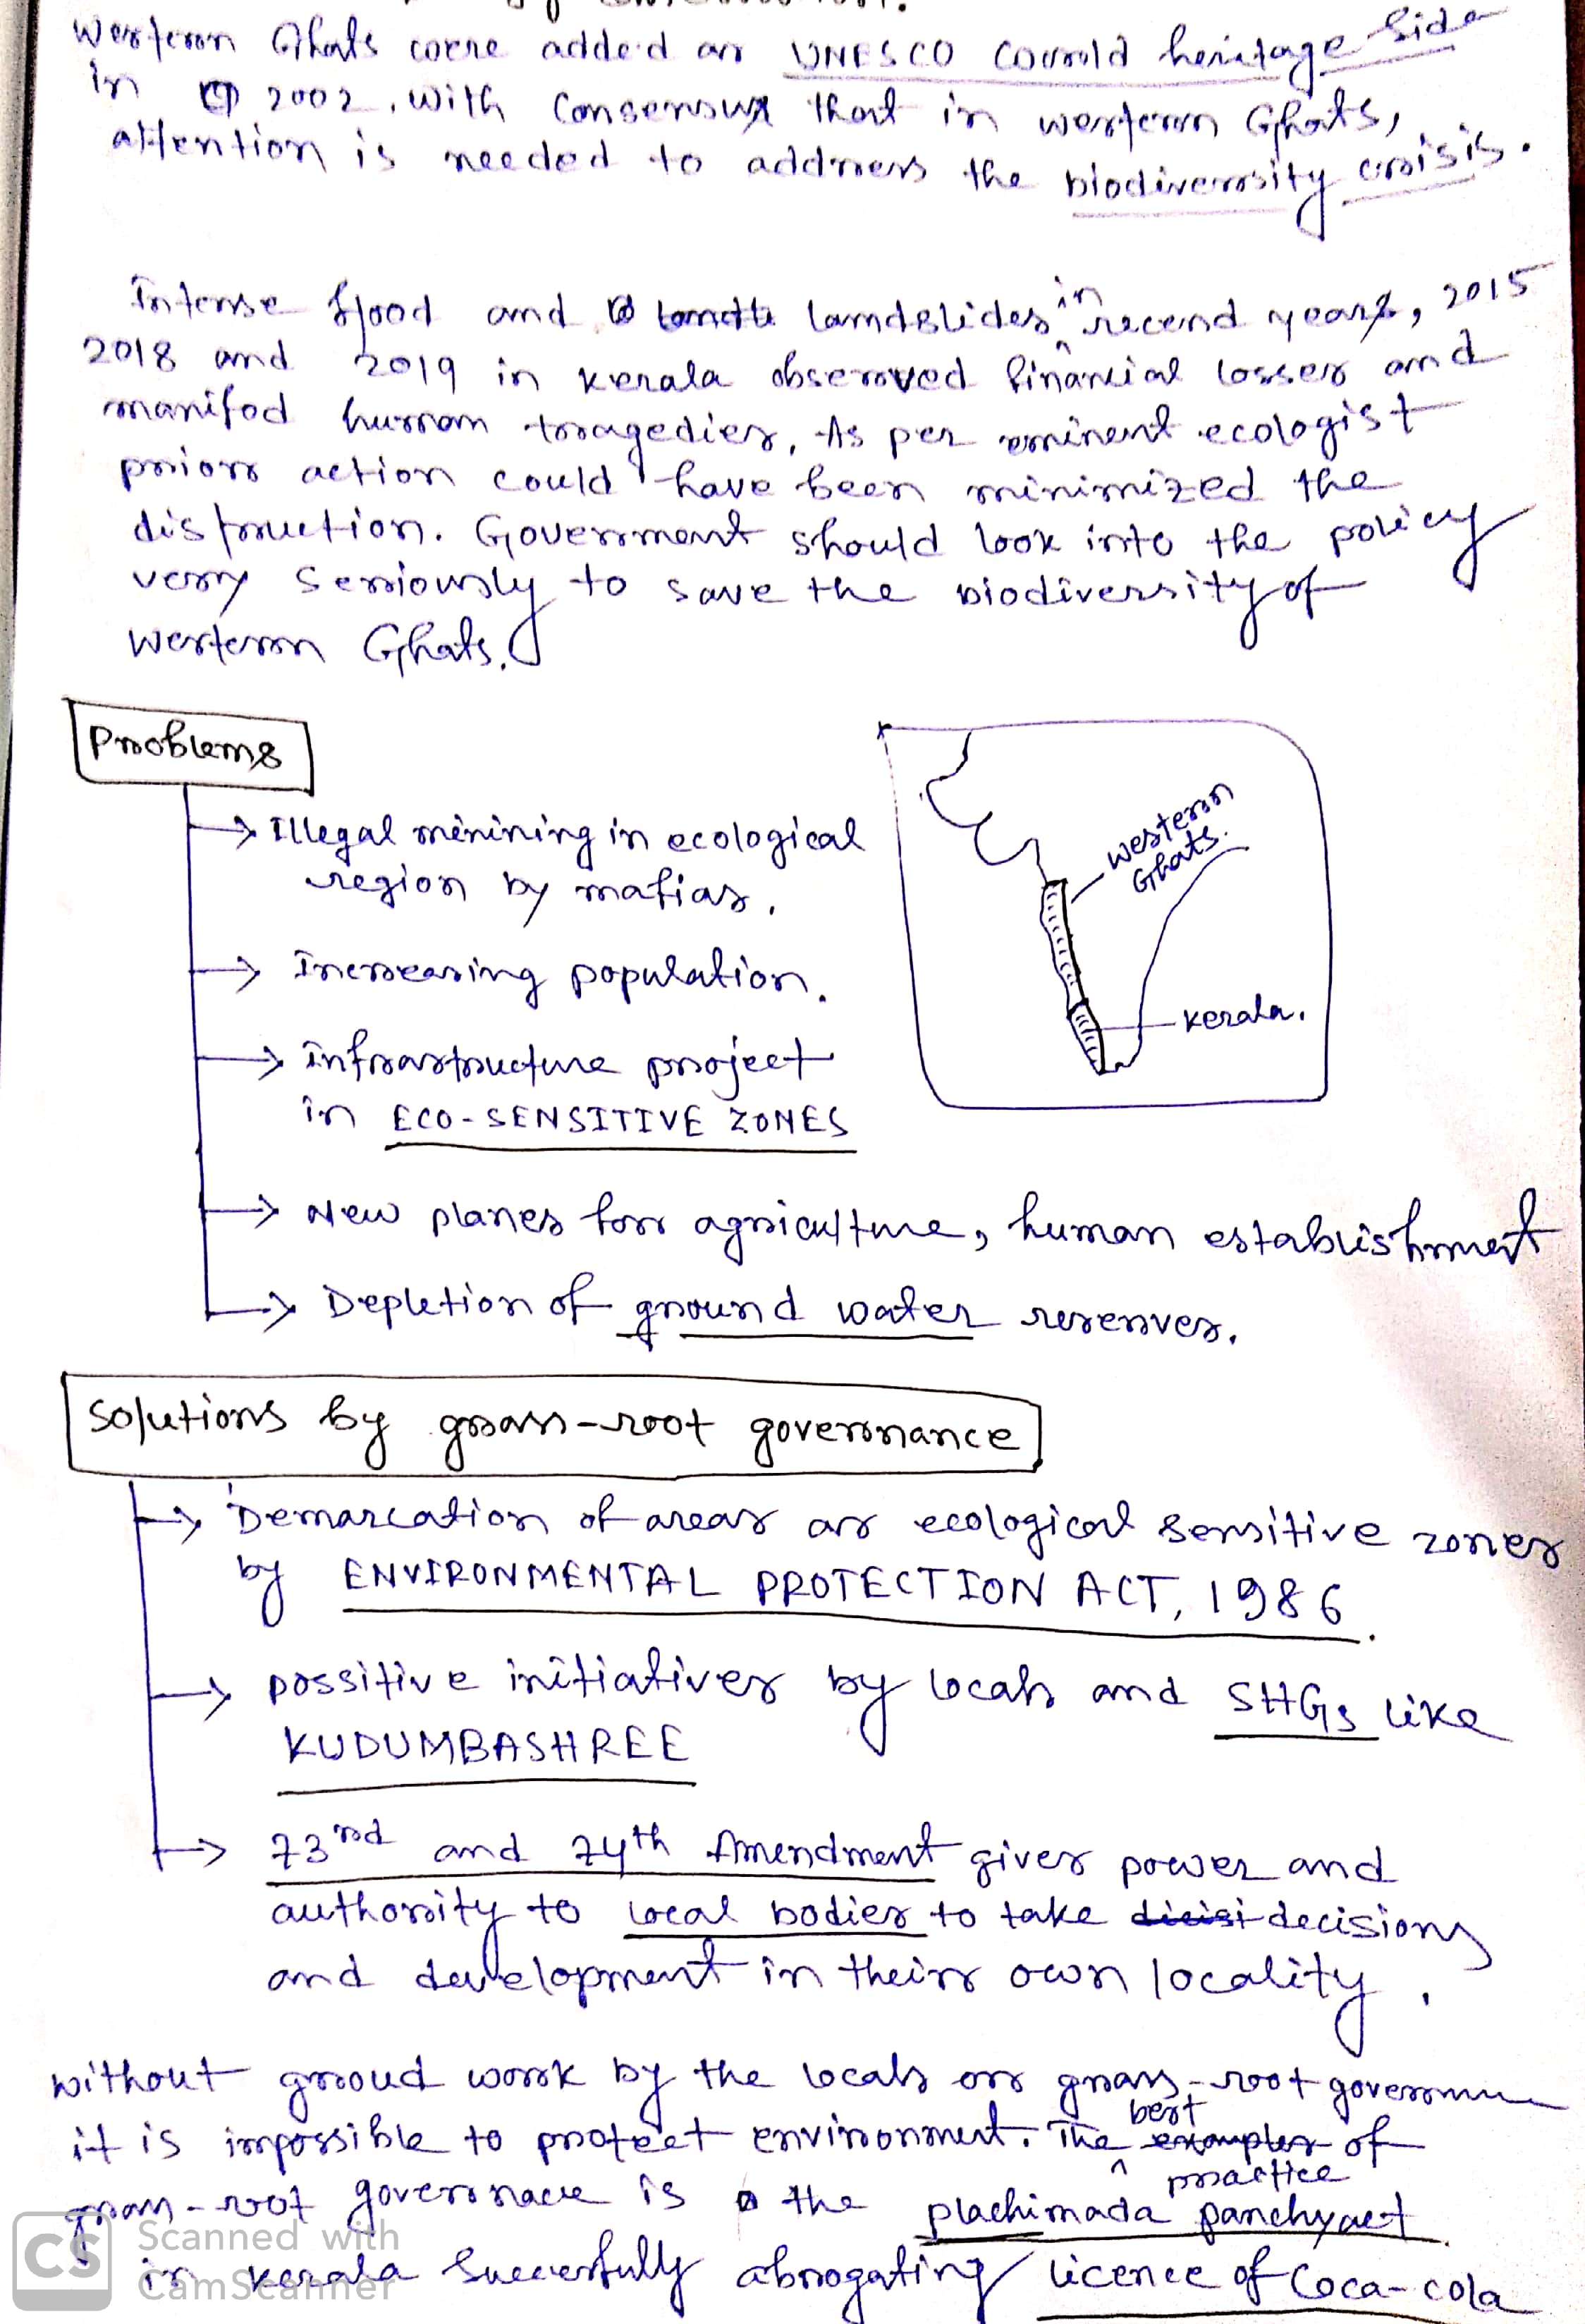 Western Ghats were added as UNESCO world heritage side
in 2002, with consensus that in western Ghats,
attention is needed to address the biodiversity crisis.
Intense flood and landslides in recend years, 2015
2018 and 2019 in Kerala observed financial losses and
manifod human tragedies, As per eminent ecologist
prior action could have been minimized the
distruction. Government should look into the policy
very seriously to save the biodiversity of
western Ghats.
Problems
→ Illegal minining in ecological
region by mafias.
→ Increasing population.
→ infrastructure project
in ECO-SENSITIVE ZONES
→ New planes for agriculture, human establishment
→ Depletion of ground water reserves.
western
Ghats.
Kerala.
Solutions by grass-root governance
→ Demarcation of areas as ecological sensitive zones
by ENVIRONMENTAL PROTECTION ACT, 1986.
→ possitive initiatives by locals and SHGs like
KUDUMBASHREE
→ 73rd and 74th Amendment gives power and
authority to local bodies to take decisions
and development in their own locality.
without groud work by the locals or grass-root
it is impossible to protect environment. The best practice of
grass-root governace is the plachimada panchyaet
in Kerala successfully abrogating licence of Coca-cola
CS Scanned with
CamScanner